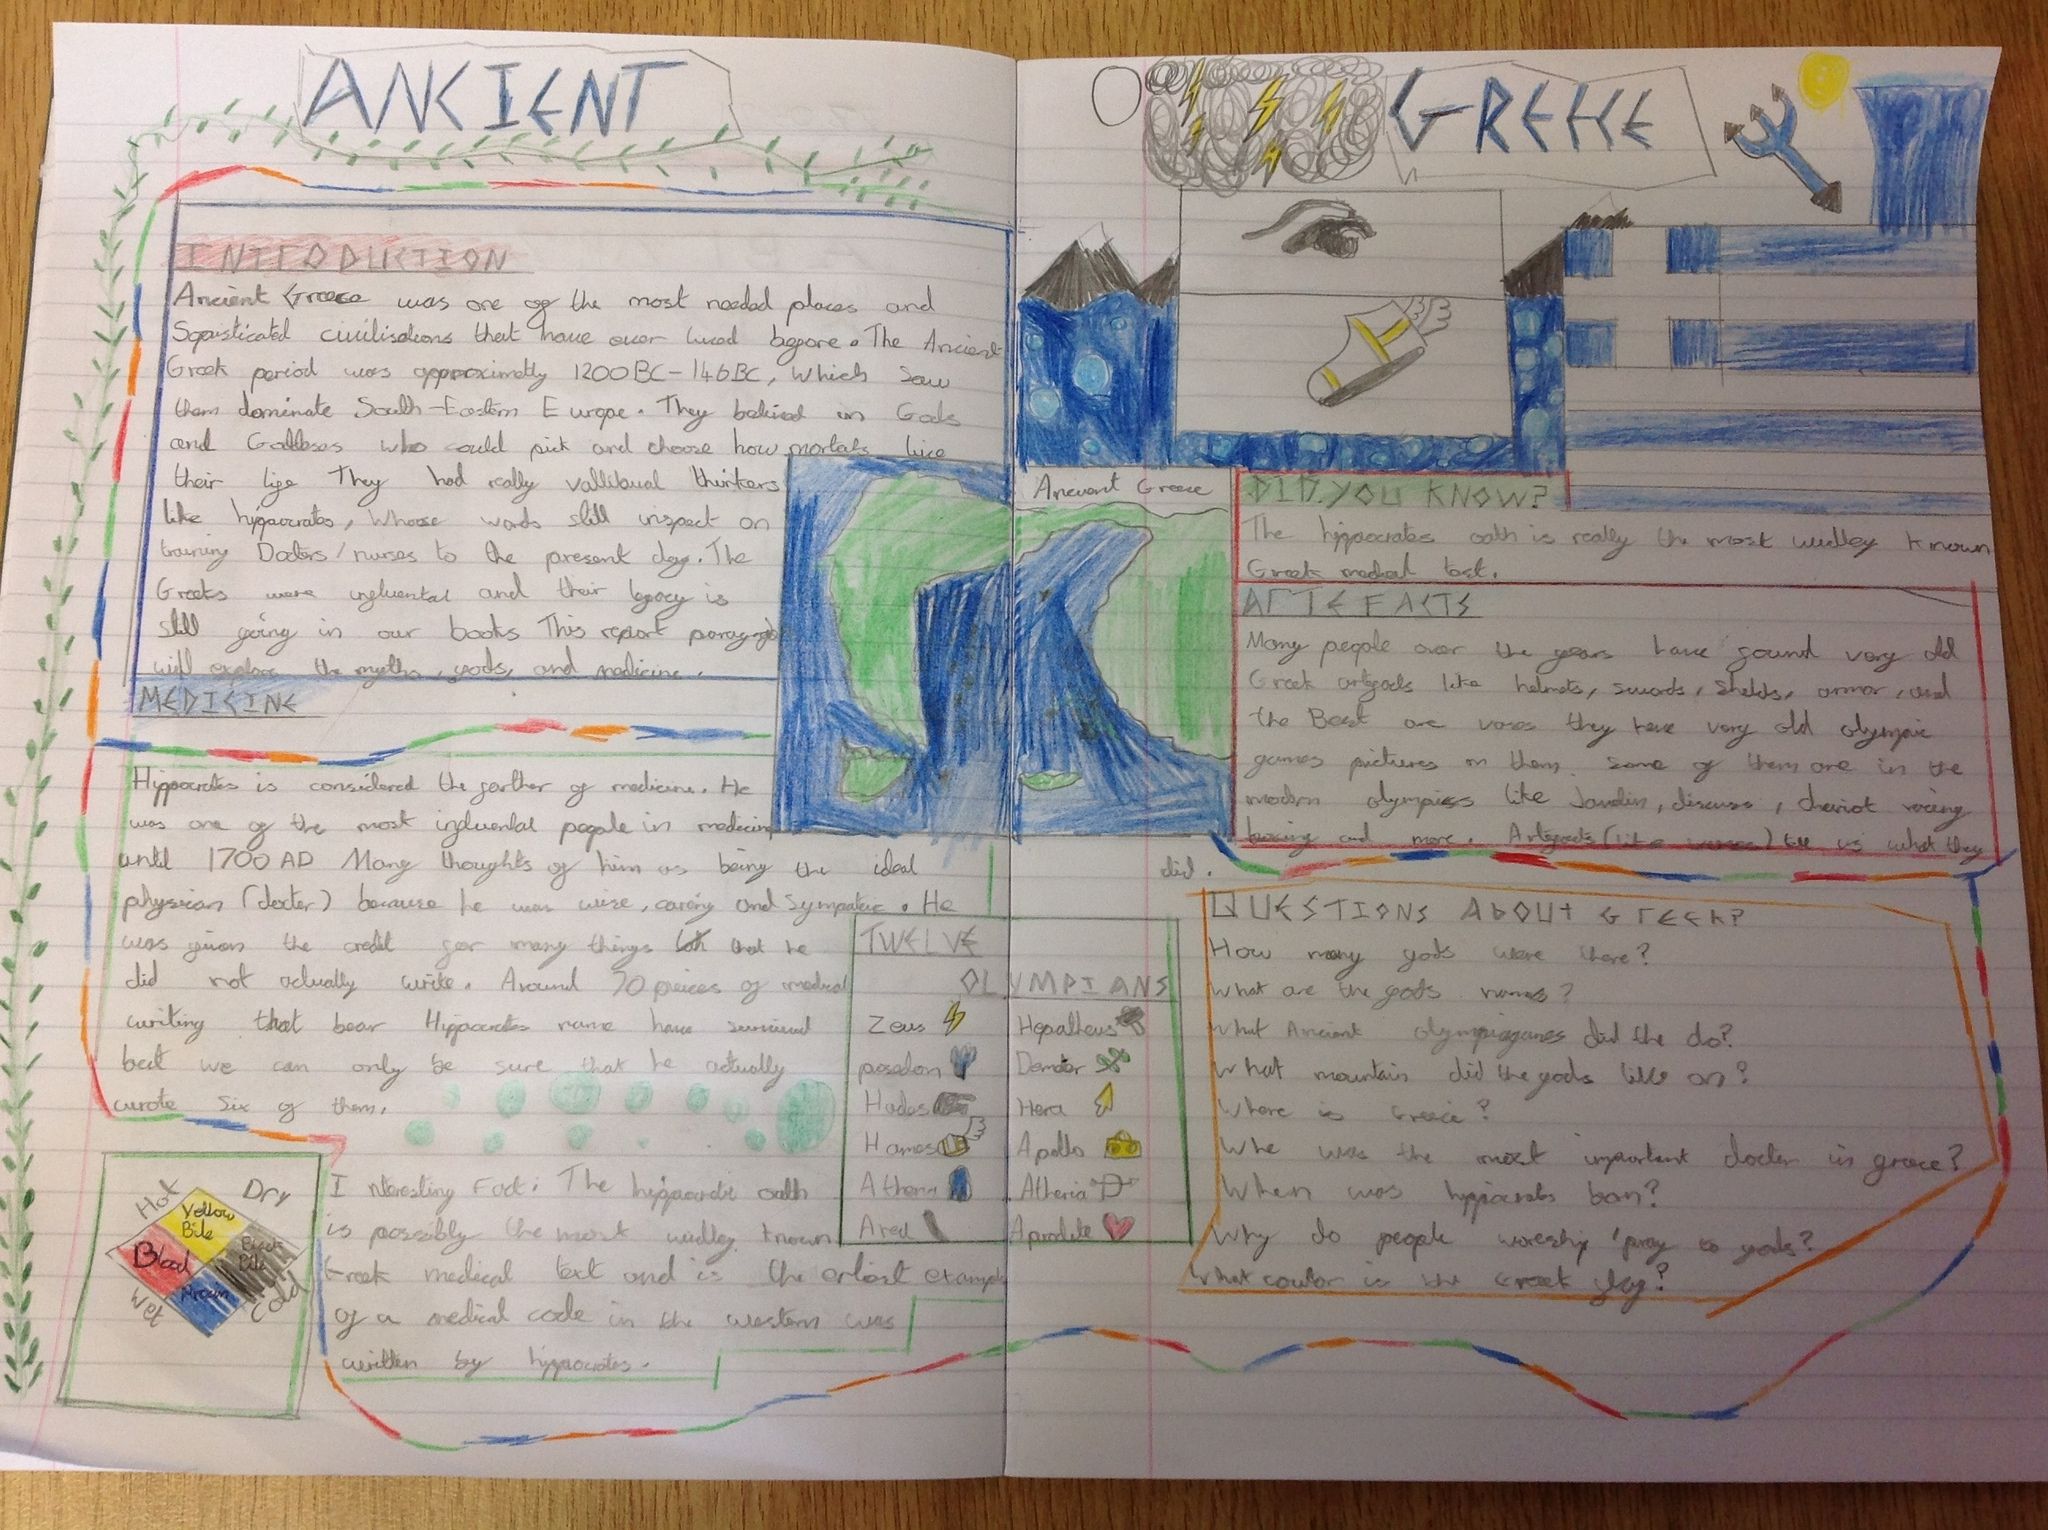 ANCIENT
GREECE
INTRODUCTION
Ancient Greece was one of the most needed places and
Sopisticated civilisations that have ever lived before. The Ancient
Greek period was approximetly 1200BC-146BC, Which saw
them dominate South-Eastern Europe. They belived in Gods
and who could pick and choose how mortals live
their life They had really thinkers
like hippocrates, Whose words still inspect on
training Doctors/nurses to the present day. The
Greeks were influental and their legacy is
still going in our books This report paragraph
will explore the myths, gods, and medicine.
MEDICINE
Hippocrates is considered the farther of medicine. He
was one of the most influental people in medicine
until 1700 AD Many thoughts of him as being the ideal
physician (docter) because he was wise, caring and sympatic. He
was given the credit for many things that he
did not actually write. Around 70 peices of medical
writing that bear Hippocrates name have survived
but we can only be sure that he actually
wrote six of them.
Hot
Dry
Yellow Bile
Blood
Black Bile
Wet
Cold
Interesting Fact: The hippocratic oath
is possibly the most widley known
Greek medical text and is the erliest example
of a medical code in the western was
written by hippocrates.
Ancient Greece
TWELVE
OLYMPIANS
Zeus
posedon
Hades
Hames
Athena
Ared
Hepatheus
Demter
Hera
Apollo
Atheria
Aprodite
DID YOU KNOW?
The hippocrates oath is really the most widley known
Greek medical text.
ARTEFACTS
Many people over the years have found very old
Greek like helmets, swords, shelds, armor, and
the Best are vases they have very old olympic
games pictures on them. Some of them are in the
modern like discuss, chariot racing
boxing and more. (like vases) tell us what they
did.
QUESTIONS ABOUT GREEK?
How many gods were there?
What are the gods names?
What Ancient did the do?
What mountain did the gods on?
Where is Greece?
Who was the most important docter in grece?
When was hippocrates born?
Why do people worship pray to gods?
What coulor is the Greek flag?